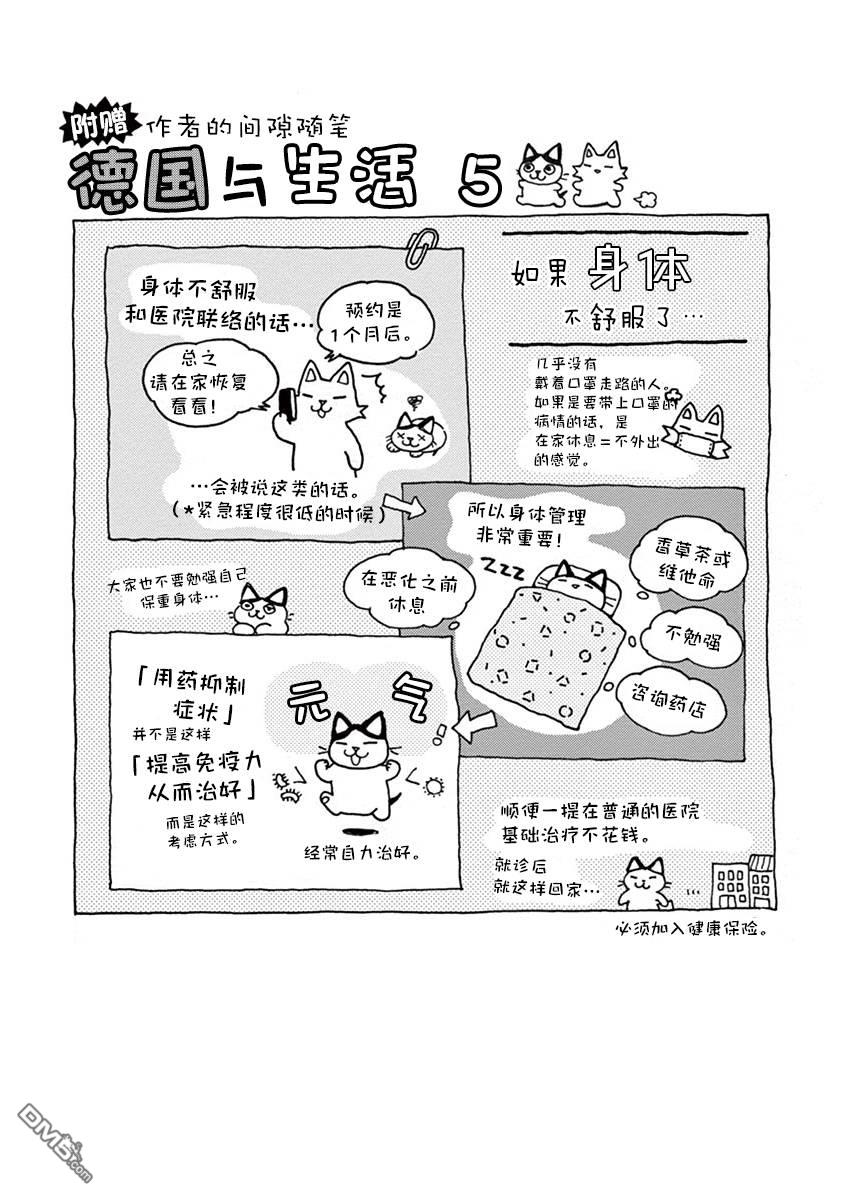 附赠
作者的间隙随笔
德国与生活 5
如果 身体
不舒服了…
几乎没有
戴着口罩走路的人。
如果是要带上口罩的
病情的话，是
在家休息=不外出
的感觉。
身体不舒服
和医院联络的话…
预约是
1个月后。
总之
请在家恢复
看看!
…会被说这类的话。
(*紧急程度很低的时候)
所以身体管理
非常重要!
zzz
香草茶或
维他命
在恶化之前
休息
不勉强
咨询药店
大家也不要勉强自己
保重身体…
「用药抑制
症状」
并不是这样
「提高免疫力
从而治好」
而是这样的
考虑方式。
元气
经常自力治好。
顺便一提在普通的医院
基础治疗不花钱。
就诊后
就这样回家…
…
必须加入健康保险。
DM5.com